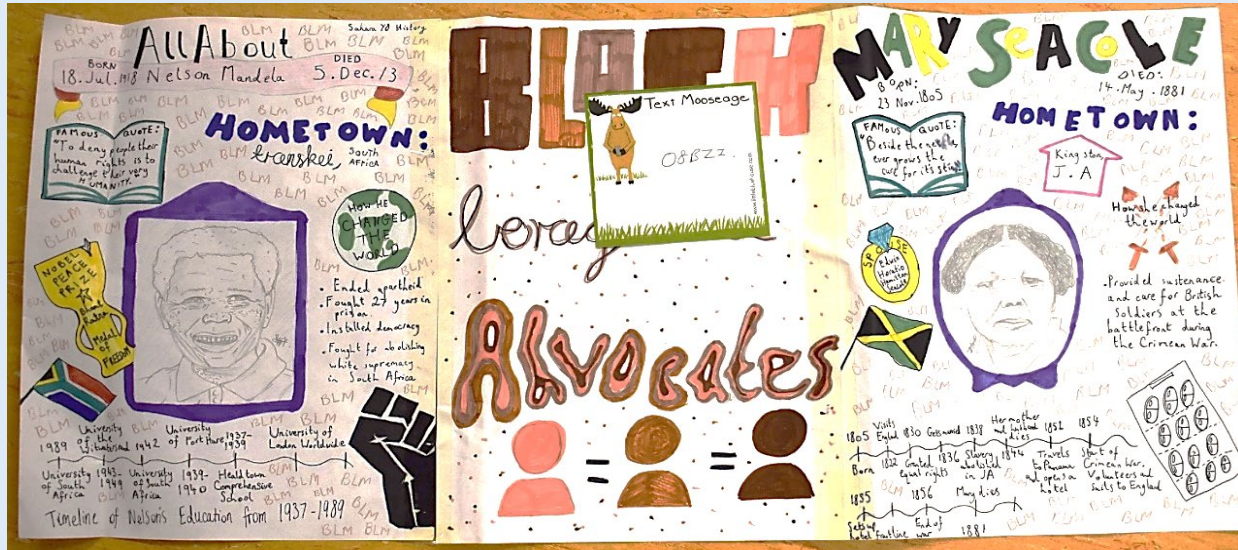 All About
Sahara Y8 History
BORN
DIED
18. Jul. 1918 Nelson Mandela 5. Dec. 13
FAMOUS QUOTE:
"To deny people their
human rights is to
challenge their very
HUMANITY.
HOMETOWN:
transkei, SOUTH
AFRICA
HOW HE
CHANGED
THE
WORLD
NOBEL
PEACE
PRIZE
Medal
of
FREEDOM
. Ended apartheid
. Fought 27 years in
prison
. Installed democracy
. Fought for abolishing
white supremacy
in South Africa
1989 University of the Witwatersrand 1942 University of Fort Hare 1937-1939 University of London Worldwide
University of South Africa 1943-1949 University of South Africa 1939-1940 Healdtown Comprehensive School
Timeline of Nelson's Education from 1937-1989
BLM
BLACK
Text Mooseage
08BZZ.
Advocates
=
=
MARY SEACOLE
BORN:
23 Nov. 1805
DIED:
14. May. 1881
FAMOUS QUOTE:
"Beside the nettle,
ever grows the
cure for its sting"
HOMETOWN:
Kingston,
J.A
SPOUSE
Edwin
Horatio
Hamilton
Seacole
How she changed
the world
. Provided sustenance
and care for British
Soldiers at the
battlefront during
the Crimean War.
1805 Visits England 1830 Gets married 1838 Her mother and husband dies 1852 1854
Born 1822 Granted equal rights 1836 Slavery abolished in JA 1844 Travels to Panama and opens a hotel Start of Crimean War. Volunteers and sails to England
1855 1856 Mary dies
hotel Frontline End of war 1881
BLM